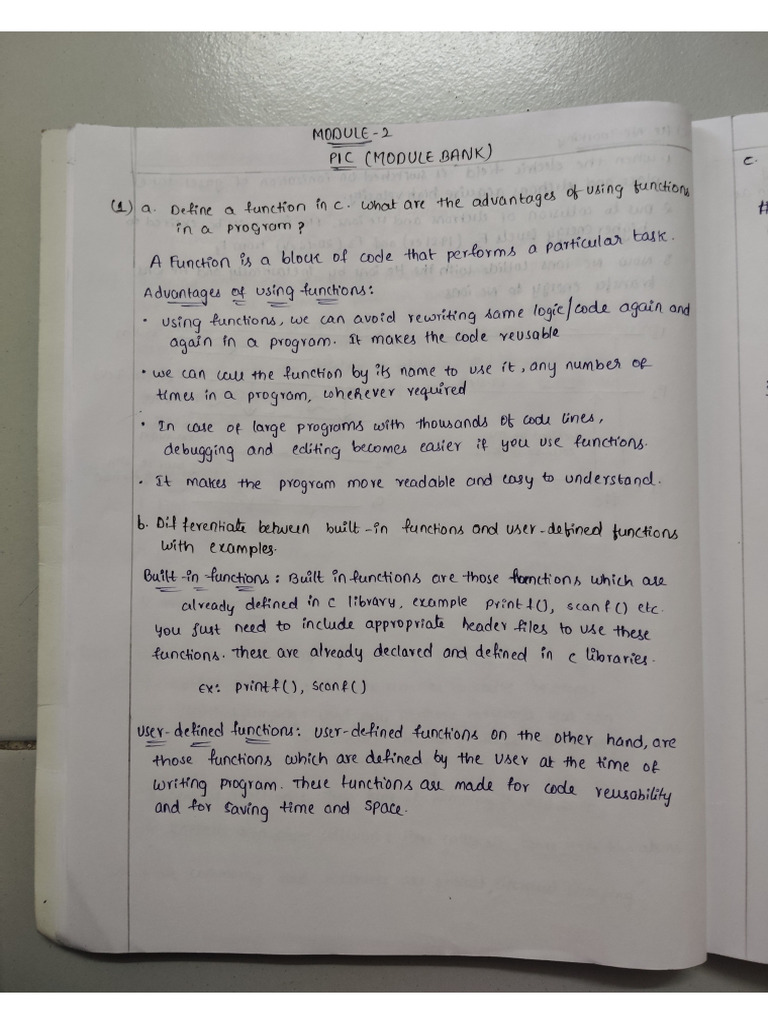 MODULE-2
PIC (MODULE BANK)
(1) a. Define a function in C. What are the advantages of using functions
in a program?
A Function is a block of code that performs a particular task.
Advantages of using functions:
• using functions, we can avoid rewriting same logic/code again and
again in a program. It makes the code reusable
• we can call the function by its name to use it, any number of
times in a program, whenever required
• In case of large programs with thousands of code lines,
debugging and editing becomes easier if you use functions.
• It makes the program more readable and easy to understand.
b. Differentiate between built-in functions and user-defined functions
with examples.
Built-in functions: Built in functions are those functions which are
already defined in C library, example printf(), scanf() etc.
You just need to include appropriate header files to use these
functions. These are already declared and defined in C libraries.
ex: printf(), scanf()
User-defined functions: User-defined functions on the other hand, are
those functions which are defined by the user at the time of
writing program. These functions are made for code reusability
and for saving time and space.
c.